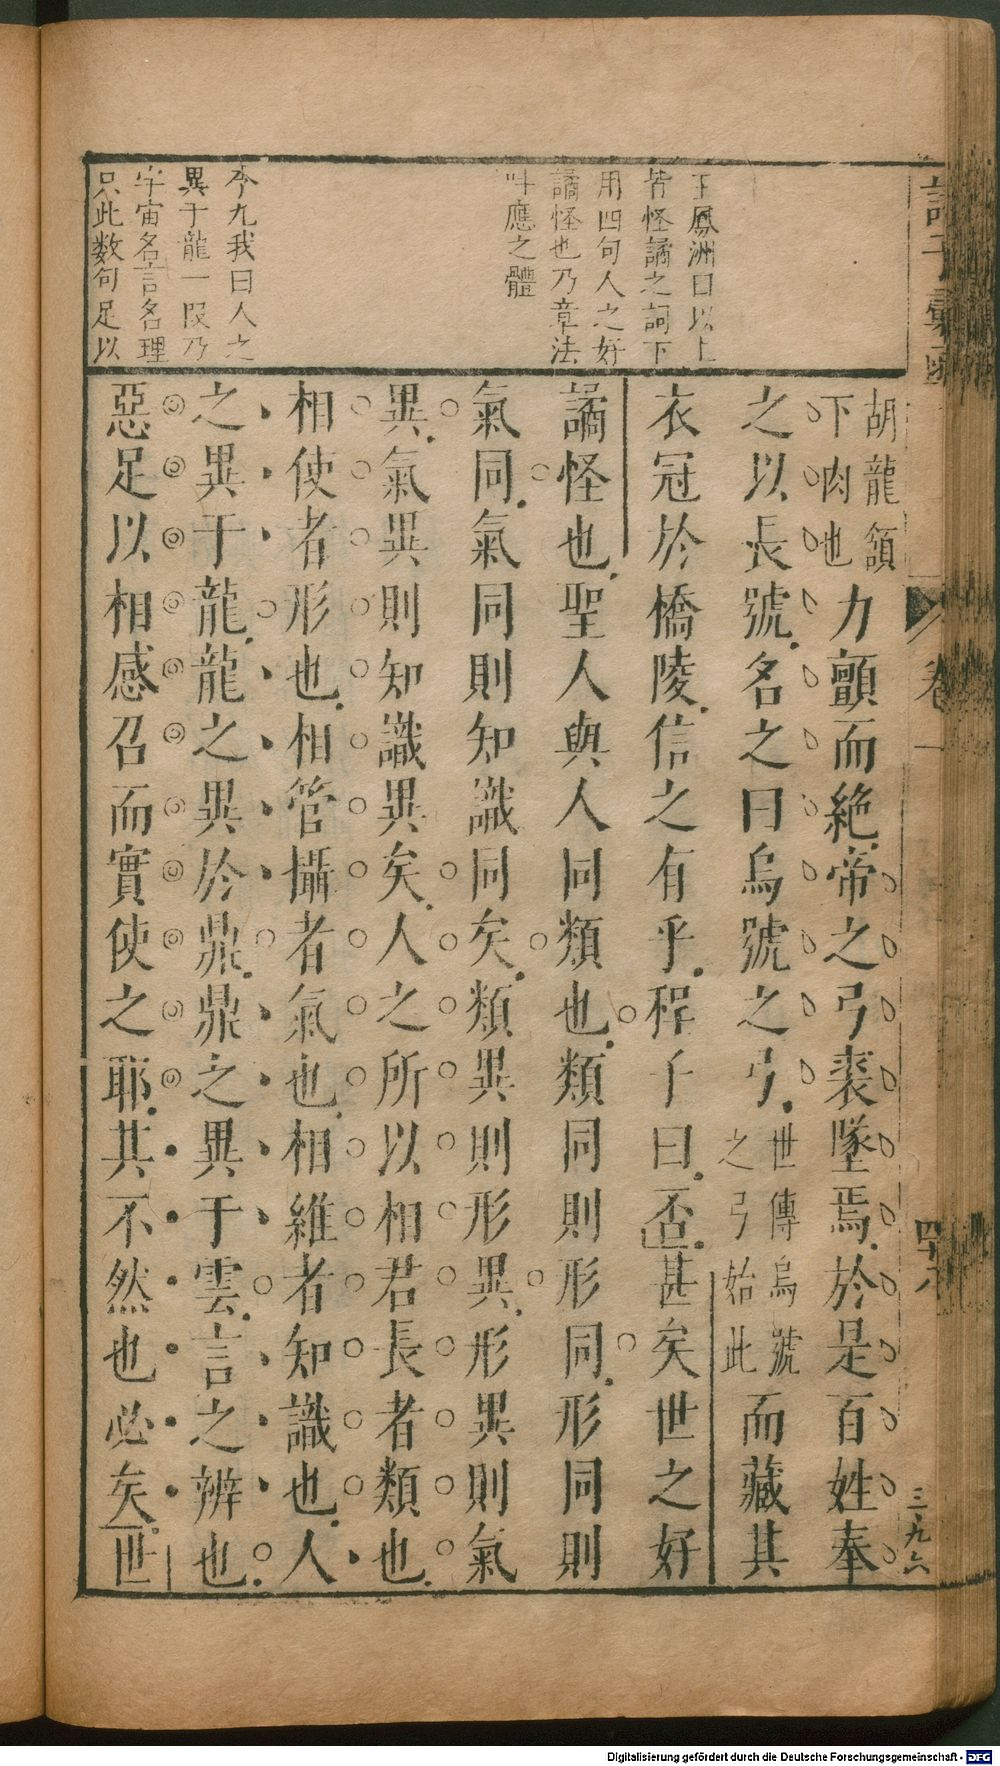 王鳳洲曰以上
皆怪譎之詞下
用四句人之好
譎怪也乃章法
叶應之體
李九我曰人之
異于龍一段乃
宇宙名言名理
只此数句足以
胡龍頷
下肉也
力顫而絶帝之弓裘墜焉於是百姓奉
之以長號名之曰烏號之弓
世傳烏號
之弓始此
而藏其
衣冠於橋陵信之有乎程子曰否甚矣世之好
譎怪也聖人與人同類也類同則形同形同則
氣同氣同則知識同矣類異則形異形異則氣
異氣異則知識異矣人之所以相君長者類也
相使者形也相管攝者氣也相維者知識也人
之異于龍龍之異於鼎鼎之異于雲言之辨也
惡足以相感召而實使之耶其不然也必矣世
諸子彙函
卷一
四十八
三九六
Digitalisierung gefördert durch die Deutsche Forschungsgemeinschaft - DFG